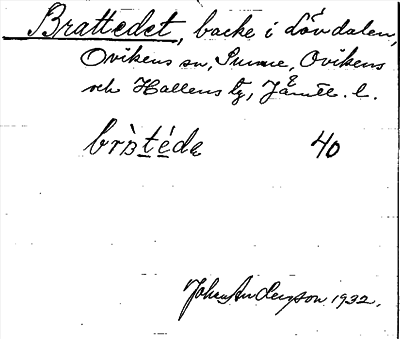 Brattedet, backe i Lövdalen,
Ovikens sn, Sunne, Ovikens
och Hallens tg, Jämtl. l.
bràtéda 40
Johan Anderzson 1932.